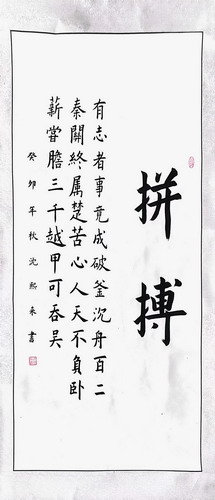 拼搏
有志者事竟成破釜沉舟百二
秦關終属楚苦心人天不負卧
薪嘗膽三千越甲可吞吴
癸卯年秋沈熙来書